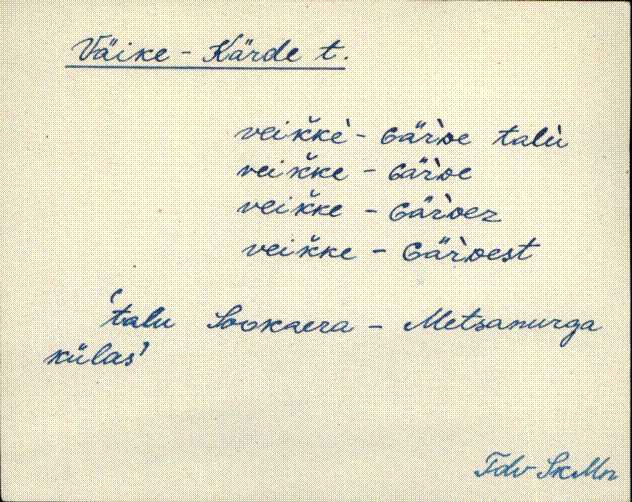 Väike - Kärde t.
veikkè - Gär̀De talù
veikke - Gär̀De
veikke - Gär̀Dez
veikke - Gär̀Dest
'talu Sookaera - Metsanurga
külas'
Tdv SkMn